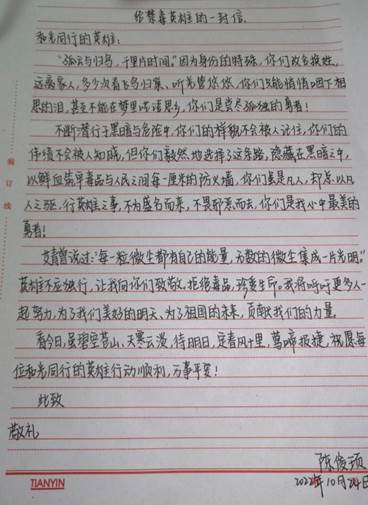 给禁毒英雄的一封信
和光同行的英雄：
"孤云与归鸟，千里片时间。"因为身份的特殊，你们改名换姓，
远离家人，多少次看飞鸟归巢，听羌管悠悠，你们只能悄悄咽下相
思的泪，甚至不能在梦里呓语思乡，你们是尝尽孤独的勇者！
不断潜行于黑暗与危险中，你们的样貌不会被人记住，你们的
伟绩不会被人知晓，但你们毅然地选择了这条路，隐蔽在黑暗之中，
以鲜血筑牢毒品与人民之间每一厘米的防火墙，你们虽是凡人，却总以凡
人之躯，行英雄之事，不为盛名而来，不畏邪恶而去，你们是我心中最美的
勇者！
艾青曾说过："每一粒微尘都有自己的能量，无数的微尘集成一片光明。"
英雄不应独行，让我向你们致敬，拒绝毒品，珍爱生命，我将呼吁更多人一
起努力，为了我们美好的明天，为了祖国的未来，贡献我们的力量。
看今日，吴望空苍山，天寒云淡，待明日，定春风十里，莺啼报捷，祝愿每
位和光同行的英雄行动顺利，万事平安！
此致
敬礼
陈俊颖
2022年10月24日
装订线
TIANYIN